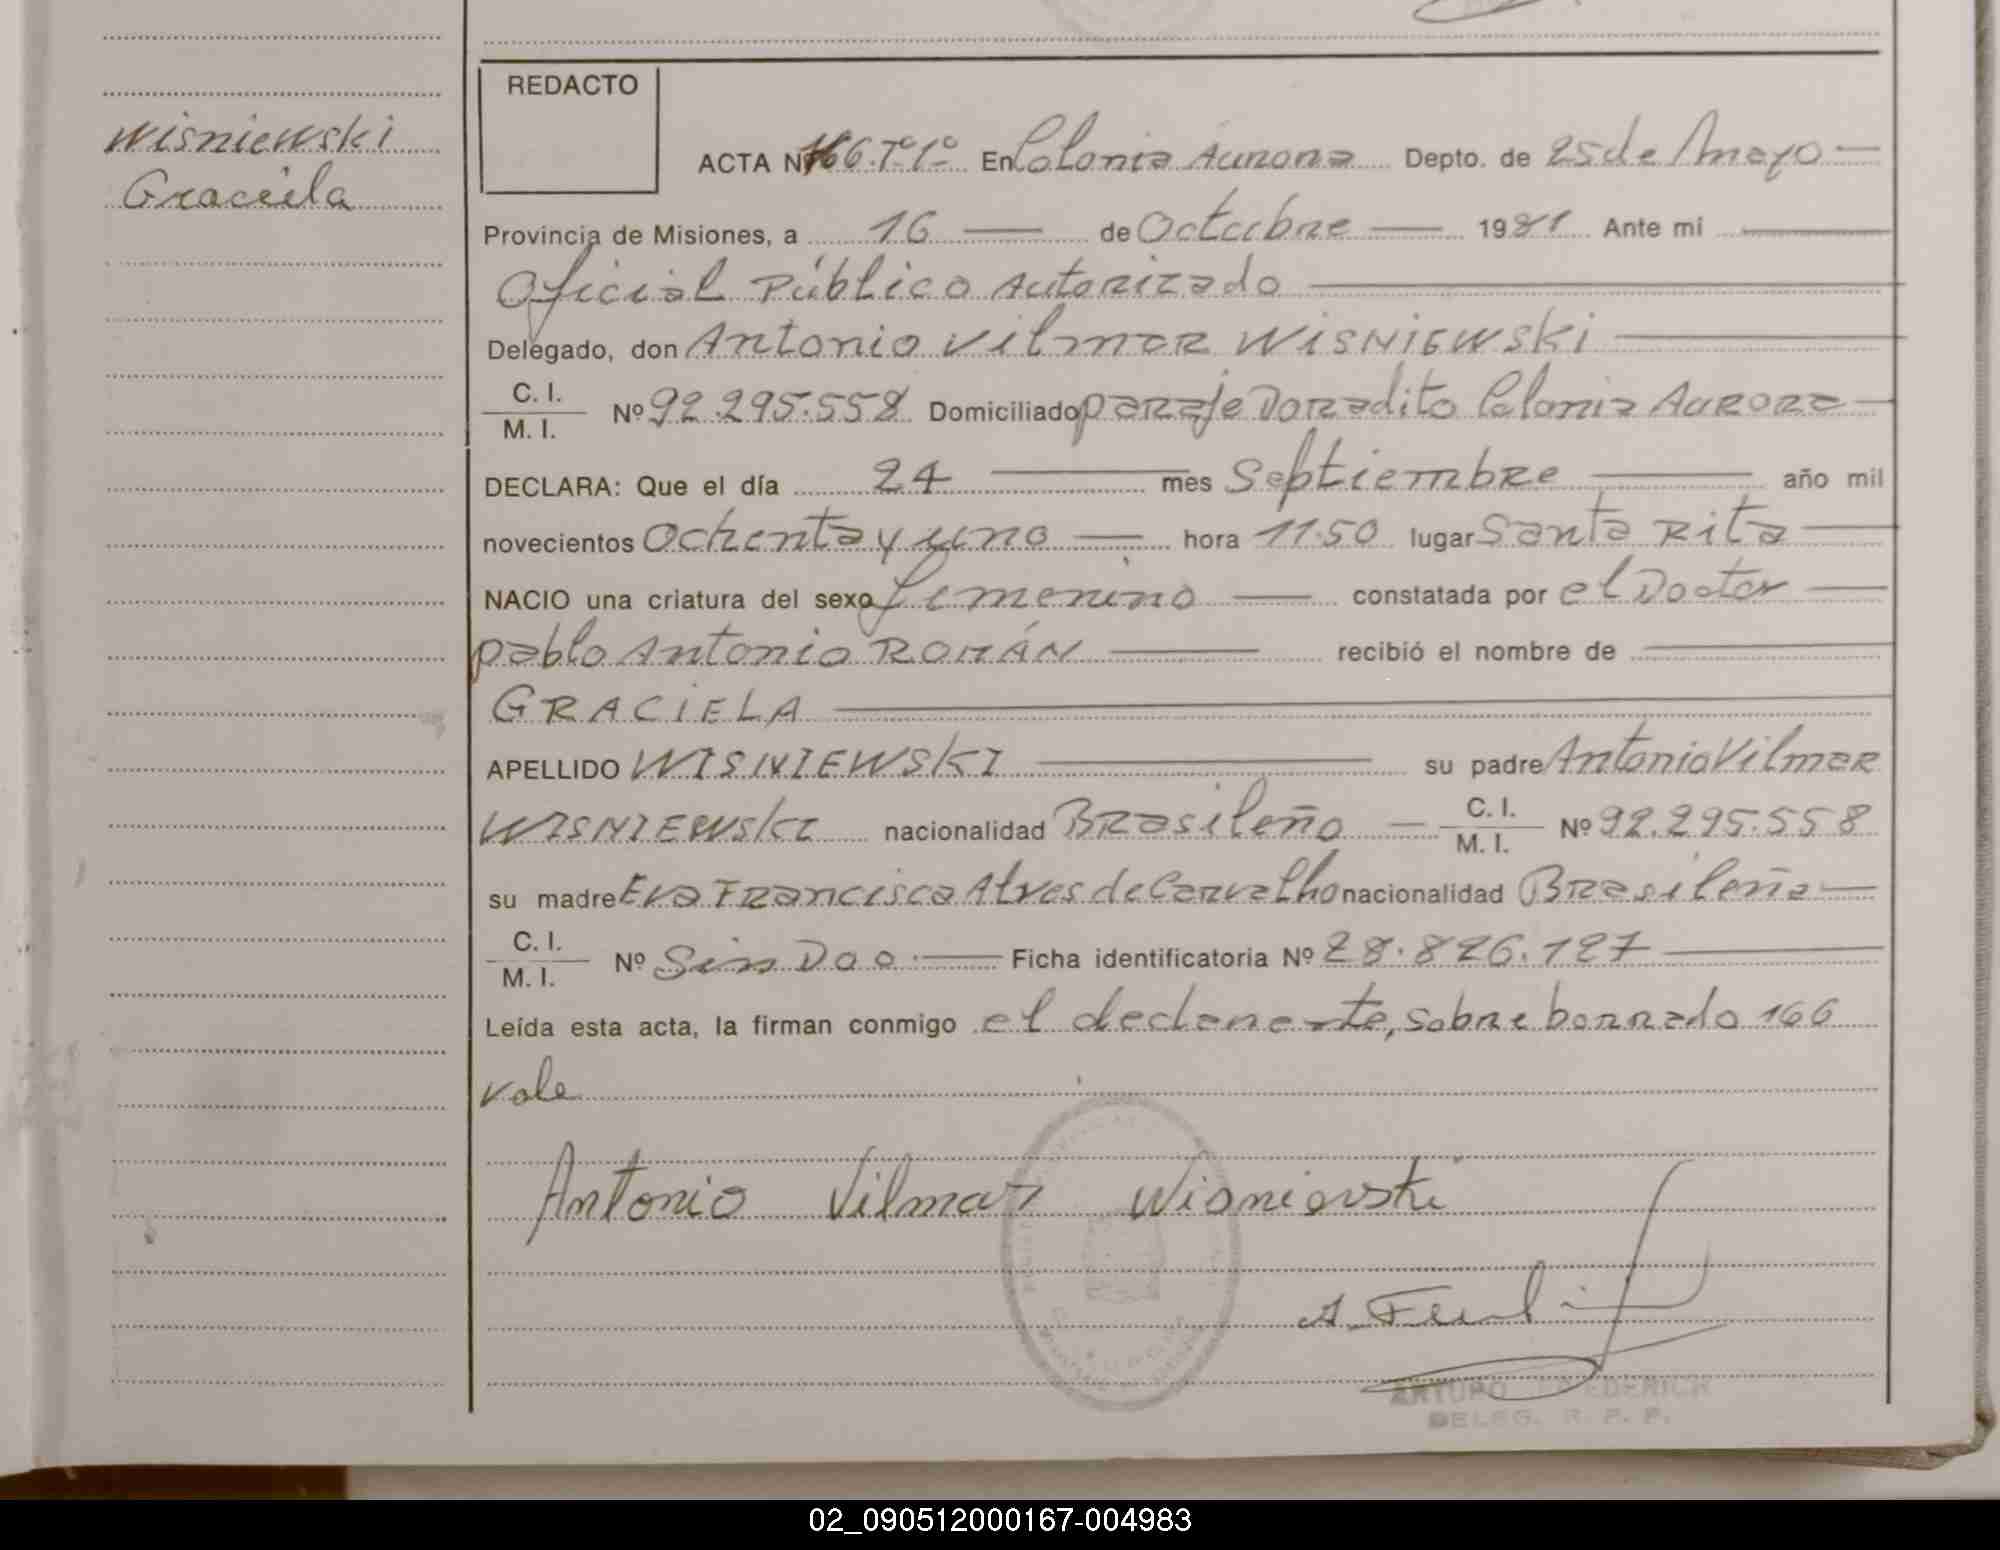 Wisniewski
Graciela
REDACTO
ACTA Nº 166 Tº 1º En Colonia Aurora Depto. de 25 de Mayo
Provincia de Misiones, a 16 de Octubre 1981 Ante mi
Oficial Público Autorizado
Delegado, don Antonio Vilmar WISNIEWSKI
C. I.
M. I. Nº 92.295.558 Domiciliado paraje Doradito Colonia Aurora
DECLARA: Que el día 24 mes Septiembre año mil
novecientos Ochenta y uno hora 11.50 lugar Santa Rita
NACIO una criatura del sexo femenino constatada por el Doctor
pablo Antonio ROMÁN recibió el nombre de
GRACIELA
APELLIDO WISNIEWSKI su padre Antonio Vilmar
WISNIEWSKI nacionalidad Brasileño C. I. M. I. Nº 92.295.558
su madre Eva Francisca Alves de Carvalho nacionalidad Brasileña
C. I.
M. I. Nº Sin Doc. Ficha identificatoria Nº 28.826.127
Leída esta acta, la firman conmigo el declarante, sobre borrado 166
vale
Antonio Vilmar Wisnievski
ARTURO FREDERICH
DELEG. R. P. P.
02_090512000167-004983